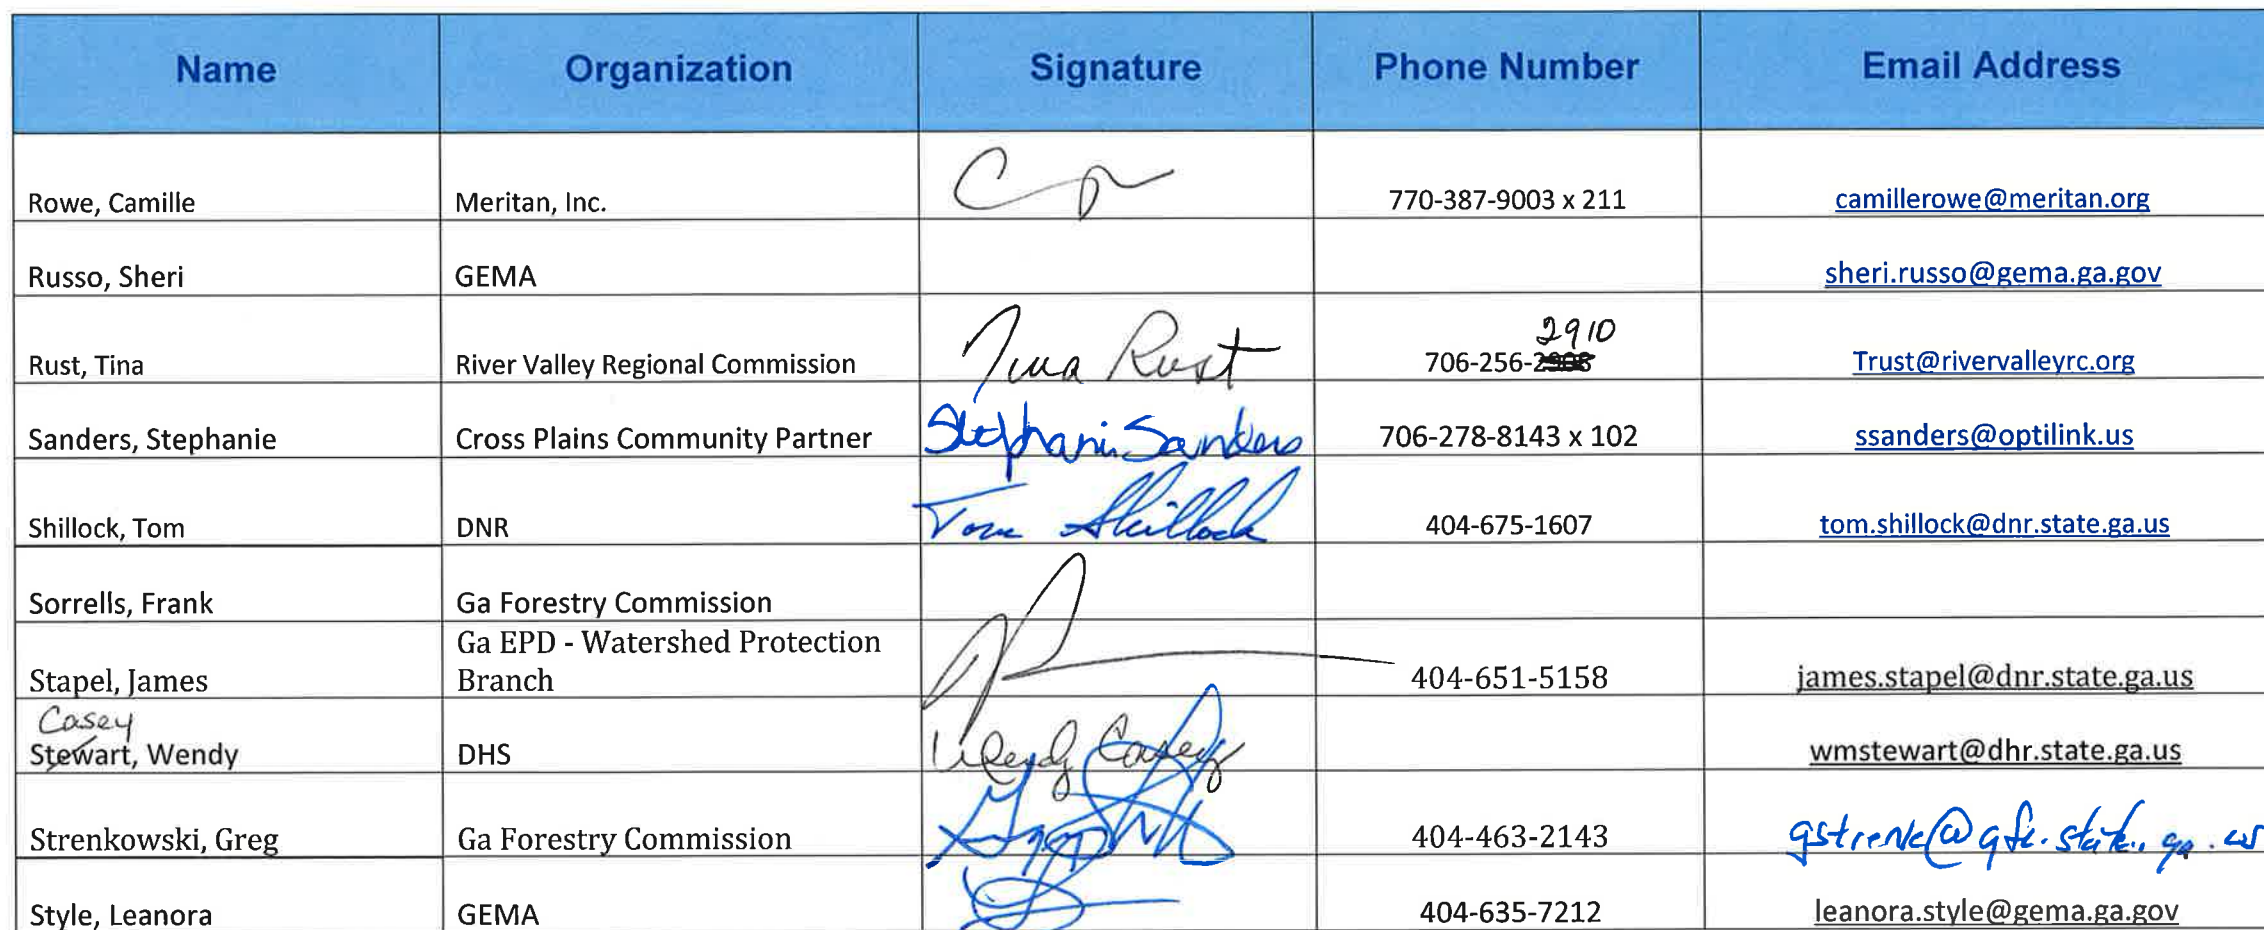 Name Organization Signature Phone Number Email Address
Rowe, Camille Meritan, Inc. 770-387-9003 x 211 camillerowe@meritan.org
Russo, Sheri GEMA sheri.russo@gema.ga.gov
2910
Rust, Tina River Valley Regional Commission Tina Rust 706-256-2908 Trust@rivervalleyrc.org
Sanders, Stephanie Cross Plains Community Partner Stephani Sanders 706-278-8143 x 102 ssanders@optilink.us
Shillock, Tom DNR Tom Shillock 404-675-1607 tom.shillock@dnr.state.ga.us
Sorrells, Frank Ga Forestry Commission
Ga EPD - Watershed Protection
Stapel, James Branch 404-651-5158 james.stapel@dnr.state.ga.us
Casey
Stewart, Wendy DHS Wendy Casey wmstewart@dhr.state.ga.us
Strenkowski, Greg Ga Forestry Commission 404-463-2143 gstrenk@gfc.state.ga.us
Style, Leanora GEMA 404-635-7212 leanora.style@gema.ga.gov